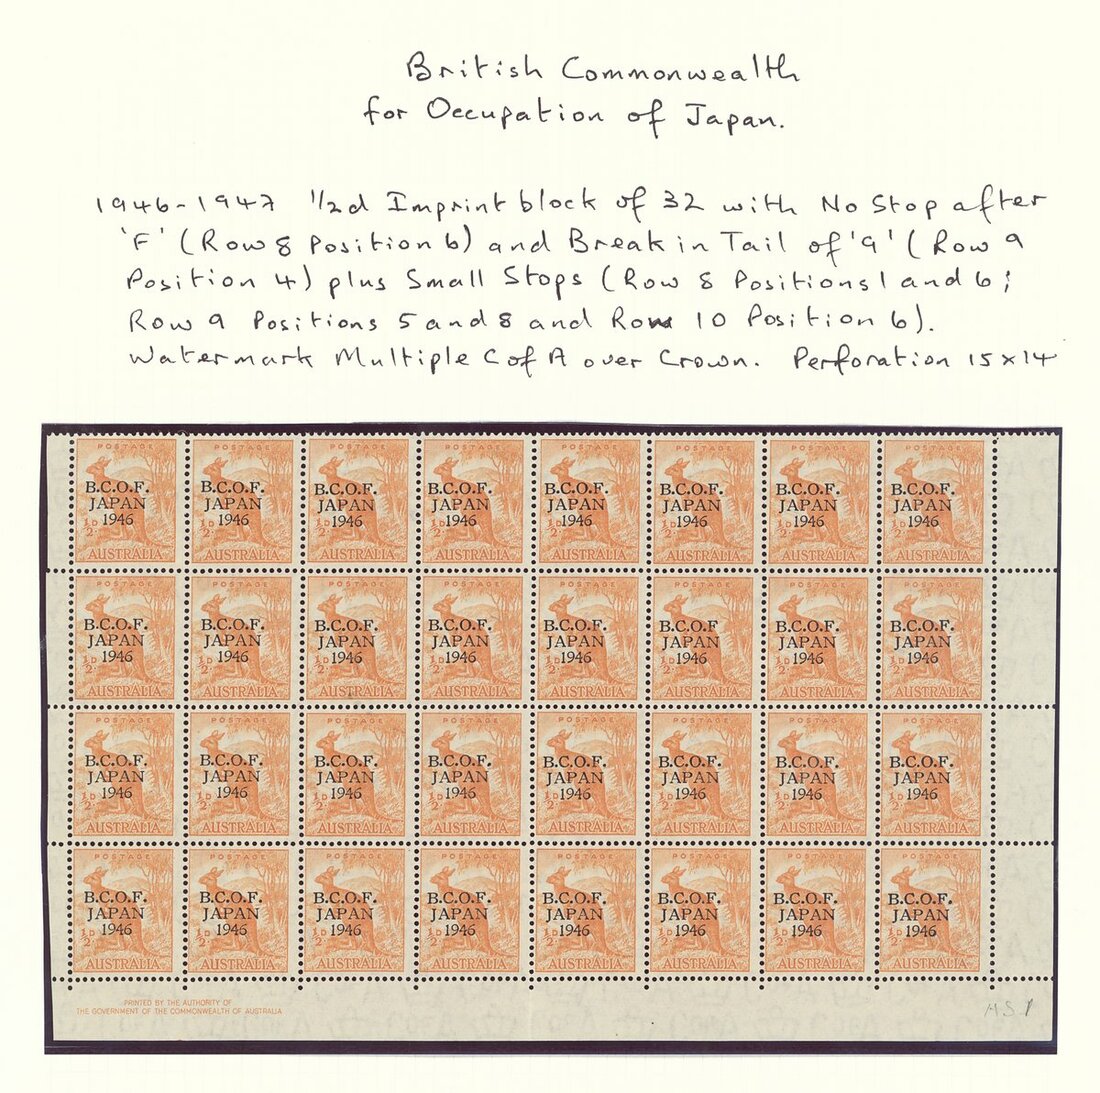 British Commonwealth
for Occupation of Japan.
1946-1947 1/2d Imprint block of 32 with No Stop after
'F' (Row 8 Position 6) and Break in Tail of '9' (Row 9
Position 4) plus Small Stops (Row 8 Positions 1 and 6;
Row 9 Positions 5 and 8 and Row 10 Position 6).
Watermark Multiple C of A over Crown. Perforation 15x14
POSTAGE POSTAGE POSTAGE POSTAGE POSTAGE POSTAGE POSTAGE POSTAGE
B.C.O.F. B.C.O.F. B.C.O.F. B.C.O.F. B.C.O.F. B.C.O.F. B.C.O.F. B.C.O.F.
JAPAN JAPAN JAPAN JAPAN JAPAN JAPAN JAPAN JAPAN
1946 1946 1946 1946 1946 1946 1946 1946
½D ½D ½D ½D ½D ½D ½D ½D
AUSTRALIA AUSTRALIA AUSTRALIA AUSTRALIA AUSTRALIA AUSTRALIA AUSTRALIA AUSTRALIA
POSTAGE POSTAGE POSTAGE POSTAGE POSTAGE POSTAGE POSTAGE POSTAGE
B.C.O.F. B.C.O.F. B.C.O.F. B.C.O.F. B.C.O.F. B.C.O.F B.C.O.F. B.C.O.F.
JAPAN JAPAN JAPAN JAPAN JAPAN JAPAN JAPAN JAPAN
1946 1946 1946 1946 1946 1946 1946 1946
½D ½D ½D ½D ½D ½D ½D ½D
AUSTRALIA AUSTRALIA AUSTRALIA AUSTRALIA AUSTRALIA AUSTRALIA AUSTRALIA AUSTRALIA
POSTAGE POSTAGE POSTAGE POSTAGE POSTAGE POSTAGE POSTAGE POSTAGE
B.C.O.F. B.C.O.F. B.C.O.F. B.C.O.F. B.C.O.F. B.C.O.F. B.C.O.F. B.C.O.F.
JAPAN JAPAN JAPAN JAPAN JAPAN JAPAN JAPAN JAPAN
1946 1946 1946 1946 1946 1946 1946 1946
½D ½D ½D ½D ½D ½D ½D ½D
AUSTRALIA AUSTRALIA AUSTRALIA AUSTRALIA AUSTRALIA AUSTRALIA AUSTRALIA AUSTRALIA
POSTAGE POSTAGE POSTAGE POSTAGE POSTAGE POSTAGE POSTAGE POSTAGE
B.C.O.F. B.C.O.F. B.C.O.F. B.C.O.F. B.C.O.F. B.C.O.F. B.C.O.F. B.C.O.F.
JAPAN JAPAN JAPAN JAPAN JAPAN JAPAN JAPAN JAPAN
1946 1946 1946 1946 1946 1946 1946 1946
½D ½D ½D ½D ½D ½D ½D ½D
AUSTRALIA AUSTRALIA AUSTRALIA AUSTRALIA AUSTRALIA AUSTRALIA AUSTRALIA AUSTRALIA
PRINTED BY THE AUTHORITY OF
THE GOVERNMENT OF THE COMMONWEALTH OF AUSTRALIA